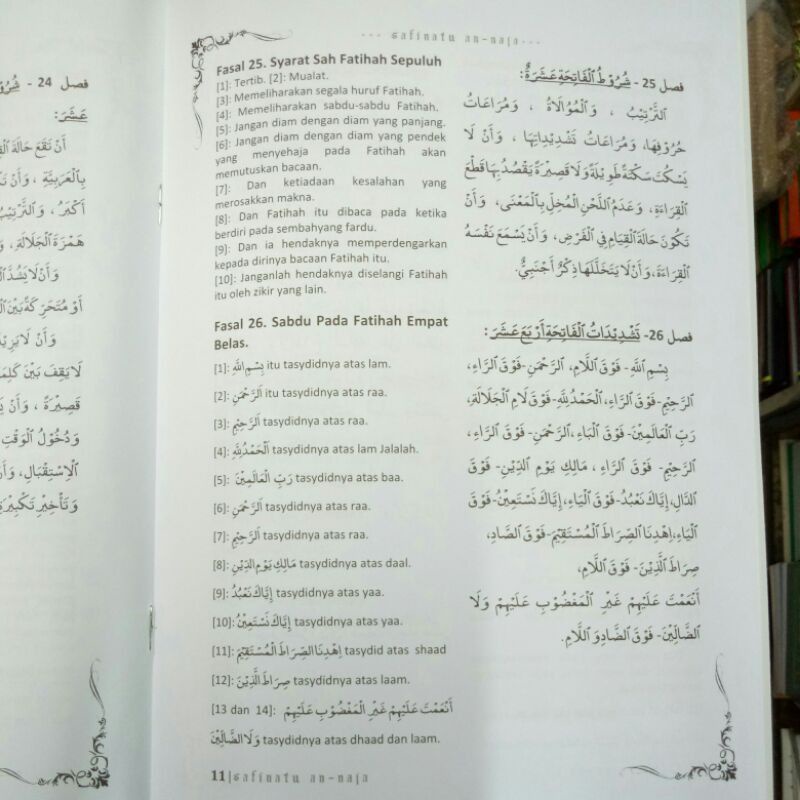 --- safinatu an-naja---
Fasal 25. Syarat Sah Fatihah Sepuluh
[1]: Tertib. [2]: Mualat.
[3]: Memeliharakan segala huruf Fatihah.
[4]: Memeliharakan sabdu-sabdu Fatihah.
[5]: Jangan diam dengan diam yang panjang.
[6]: Jangan diam dengan diam yang pendek
yang menyehaja pada Fatihah akan
memutuskan bacaan.
[7]: Dan ketiadaan kesalahan yang
merosakkan makna.
[8]: Dan Fatihah itu dibaca pada ketika
berdiri pada sembahyang fardu.
[9]: Dan ia hendaknya memperdengarkan
kepada dirinya bacaan Fatihah itu.
[10]: Janganlah hendaknya diselangi Fatihah
itu oleh zikir yang lain.
Fasal 26. Sabdu Pada Fatihah Empat
Belas.
[1]: بِسْمِ اللَّهِ itu tasydidnya atas lam.
[2]: اَلرَّحْمٰنِ itu tasydidnya atas raa.
[3]: اَلرَّحِيْمِ tasydidnya atas raa.
[4]: اَلْحَمْدُلِلَّهِ tasydidnya atas lam Jalalah.
[5]: رَبِّ الْعَالَمِيْنَ tasydidnya atas baa.
[6]: اَلرَّحْمٰنِ tasydidnya atas raa.
[7]: اَلرَّحِيْمِ tasydidnya atas raa.
[8]: مَالِكِ يَوْمِ الدِّيْنِ tasydidnya atas daal.
[9]: إِيَّاكَ نَعْبُدُ tasydidnya atas yaa.
[10]: إِيَّاكَ نَسْتَعِيْنُ tasydidnya atas yaa.
[11]: اِهْدِنَا الصِّرَاطَ الْمُسْتَقِيْمَ tasydid atas shaad
[12]: صِرَاطَ الَّذِيْنَ tasydidnya atas laam.
[13 dan 14]: أَنْعَمْتَ عَلَيْهِمْ غَيْرِ الْمَغْضُوْبِ عَلَيْهِمْ
وَلَا الضَّالِّيْنَ tasydidnya atas dhaad dan laam.
فصل 25 - شُرُوْطُ الْفَاتِحَةِ عَشَرَةٌ:
اَلتَّرْتِيْبُ ، وَالْمُوَالَاةُ ، وَمُرَاعَاتُ
حُرُوْفِهَا، وَمُرَاعَاتُ تَشْدِيْدَاتِهَا ، وَأَنْ لَا
يَسْكُتَ سَكْتَةً طَوِيْلَةً وَلَا قَصِيْرَةً يَقْصُدُ بِهَا قَطْعَ
الْقِرَاءَةِ، وَعَدَمُ اللَّحْنِ الْمُخِلِّ بِالْمَعْنَى، وَأَنْ
تَكُوْنَ حَالَةَ الْقِيَامِ فِي الْفَرْضِ، وَأَنْ يَسْمَعَ نَفْسَهُ
الْقِرَاءَةَ، وَأَنْ لَا يَتَخَلَّلَهَا ذِكْرٌ أَجْنَبِيٌّ.
فصل 26- تَشْدِيْدَاتُ الْفَاتِحَةِ أَرْبَعَ عَشَرَ:
بِسْمِ اللَّهِ- فَوْقَ اللَّامِ، اَلرَّحْمٰنِ-فَوْقَ الرَّاءِ،
اَلرَّحِيْمِ-فَوْقَ الرَّاءِ، اَلْحَمْدُ لِلَّهِ-فَوْقَ لَامِ الْجَلَالَةِ،
رَبِّ الْعَالَمِيْنَ- فَوْقَ الْبَاءِ، اَلرَّحْمٰنِ- فَوْقَ الرَّاءِ ،
اَلرَّحِيْمِ- فَوْقَ الرَّاءِ ، مَالِكِ يَوْمِ الدِّيْنِ- فَوْقَ
الدَّالِ، إِيَّاكَ نَعْبُدُ- فَوْقَ الْيَاءِ، إِيَّاكَ نَسْتَعِيْنُ- فَوْقَ
الْيَاءِ، اِهْدِنَا الصِّرَاطَ الْمُسْتَقِيْمَ- فَوْقَ الصَّادِ،
صِرَاطَ الَّذِيْنَ- فَوْقَ اللَّامِ،
أَنْعَمْتَ عَلَيْهِمْ غَيْرِ الْمَغْضُوْبِ عَلَيْهِمْ وَلَا
الضَّالِّيْنَ- فَوْقَ الضَّادِ وَ اللَّامِ.
11|safinatu an-naja
فصل 24 -
عَشَرَ:
أَنْ تَقَعَ حَالَةَ
بِالْعَرَبِيَّةِ ، وَأَنْ
أَكْبَرُ ، وَالتَّرْتِيْبُ
هَمْزَةَ الْجَلَالَةِ،
وَأَنْ لَا يَشُدَّ
أَوْ مُتَحَرِّكَةً بَيْنَ
وَأَنْ لَا يَزِيْدَ
لَا يَقِفَ بَيْنَ
قَصِيْرَةً ، وَأَنْ
وَدُخُوْلُ الْوَقْتِ
الْاِسْتِقْبَالِ، وَأَنْ
وَتَأْخِيْرُ